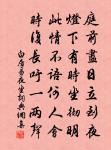 庭前盡日立到夜
燈下有時坐徹明
此情不語何人會
時復長吁一兩聲
白居易夜坐詞典網